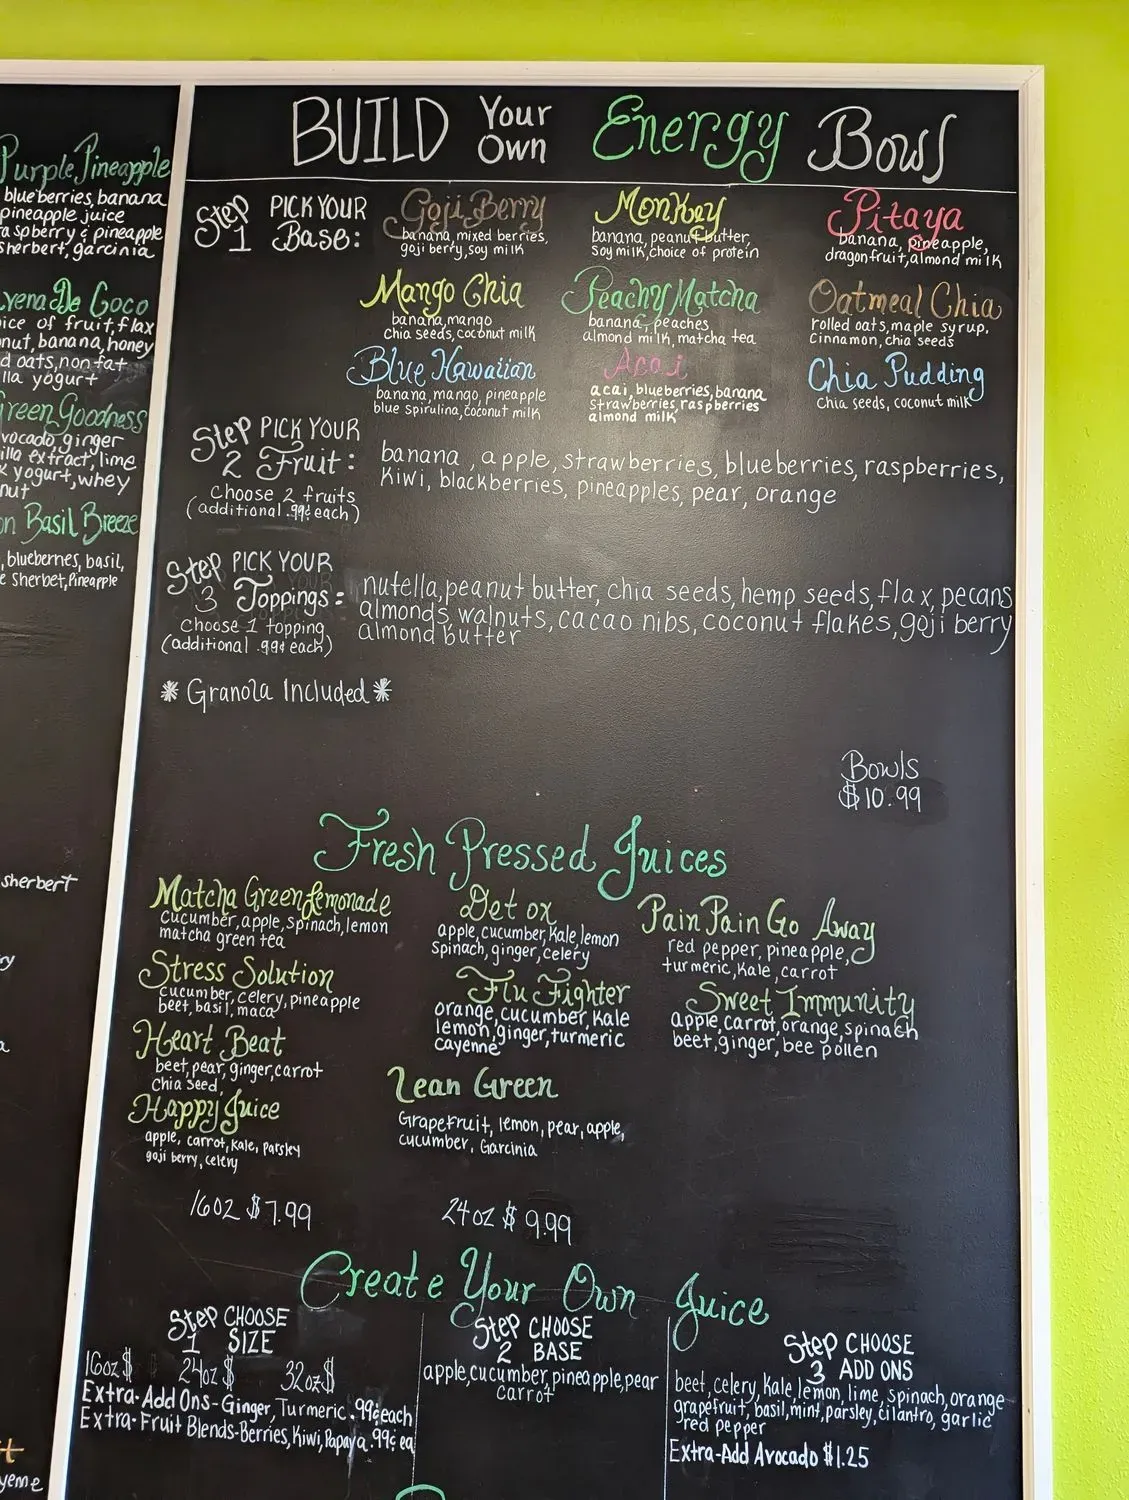 Purple Pineapple
blueberries, banana
pineapple juice
raspberry & pineapple
sherbert, garcinia
De Coco
ice of fruit, flax
nut, banana, honey
oats, non fat
yogurt
Green Goodness
avocado ginger
extract, lime
yogurt, whey
nut
Basil Breeze
, blueberries, basil,
Sherbet, Pineapple
sherbert
BUILD Your Own Energy Bowl
Step 1 PICK YOUR Base:
Goji Berry
banana, mixed berries,
goji berry, soy milk
Monkey
banana, peanut butter,
soy milk, choice of protein
Pitaya
banana, pineapple,
dragonfruit, almond milk
Mango Chia
banana, mango
chia seeds, coconut milk
Peachy Matcha
banana, peaches
almond milk, matcha tea
Oatmeal Chia
rolled oats, maple syrup,
cinnamon, chia seeds
Blue Hawaiian
banana, mango, pineapple
blue spirulina, coconut milk
Acai
acai, blueberries, banana
strawberries, raspberries
almond milk
Chia Pudding
chia seeds, coconut milk
Step 2 PICK YOUR Fruit:
choose 2 fruits
(additional .99¢ each)
banana, apple, strawberries, blueberries, raspberries,
kiwi, blackberries, pineapples, pear, orange
Step 3 PICK YOUR Toppings:
choose 1 topping
(additional .99¢ each)
nutella, peanut butter, chia seeds, hemp seeds, flax, pecans
almonds, walnuts, cacao nibs, coconut flakes, goji berry
almond butter
* Granola Included *
Bowls
$10.99
Fresh Pressed Juices
Matcha Green Lemonade
cucumber, apple, spinach, lemon
matcha green tea
Detox
apple, cucumber, kale, lemon
spinach, ginger, celery
Pain Pain Go Away
red pepper, pineapple,
turmeric, kale, carrot
Stress Solution
cucumber, celery, pineapple
beet, basil, maca
Flu Fighter
orange, cucumber, kale
lemon, ginger, turmeric
cayenne
Sweet Immunity
apple, carrot, orange, spinach
beet, ginger, bee pollen
Heart Beat
beet, pear, ginger, carrot
chia seed
Lean Green
Grapefruit, lemon, pear, apple,
cucumber, Garcinia
Happy Juice
apple, carrot, kale, parsley
goji berry, celery
16oz $7.99
24oz $9.99
Create Your Own Juice
Step 1 CHOOSE SIZE
16oz $ 24oz $ 32oz $
Extra-Add Ons- Ginger, Turmeric .99¢ each
Extra-Fruit Blends-Berries, Kiwi, Papaya .99¢ ea
Step 2 CHOOSE BASE
apple, cucumber, pineapple, pear
carrot
Step 3 CHOOSE ADD ONS
beet, celery, kale, lemon, lime, spinach, orange
grapefruit, basil, mint, parsley, cilantro, garlic
red pepper
Extra-Add Avocado $1.25